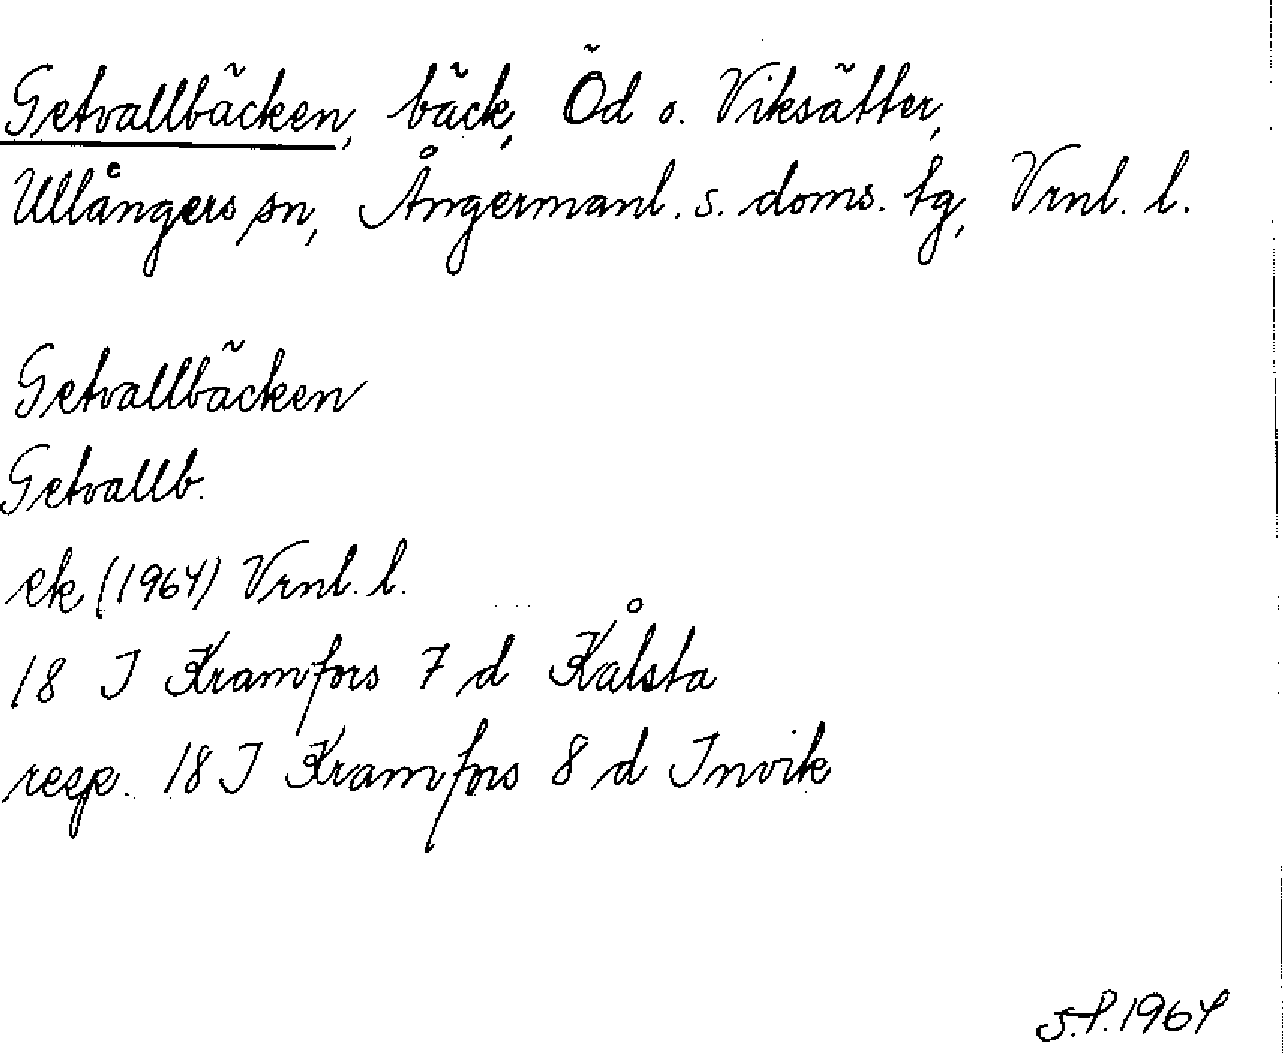 Getvallbäcken, bäck, Öd o. Viksätter,
Ullångers sn, Ångermanl. s. doms. tg, Vrnl. l.
Getvallbäcken
Getvallb.
ek (1964) Vrnl. l.
18 I Kramfors 7 d Kålsta
resp. 18 I Kramfors 8 d Invik
1964